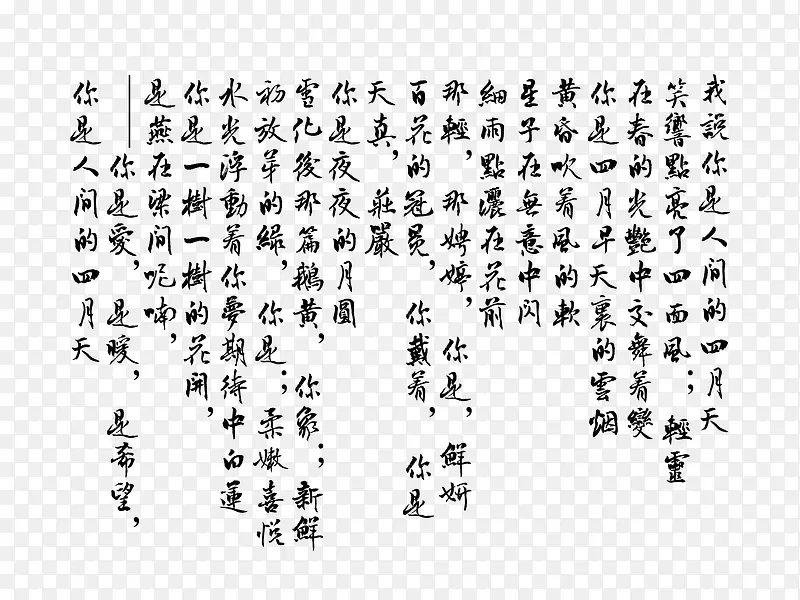 我說你是人間的四月天
笑響點亮了四面風； 輕靈
在春的光艷中交舞着變
你是四月早天裏的雲烟
黃昏吹着風的軟
星子在無意中閃
細雨點灑在花前
那輕，那娉婷， 你是，鮮妍
百花的冠冕， 你戴着， 你是
天真， 莊嚴
你是夜夜的月圓
雪化後那篇鵝黃， 你象；新鮮
初放芽的綠， 你是；柔嫩喜悅
水光浮動着你夢期待中白蓮
你是一樹一樹的花開，
是燕在梁間呢喃，
——你是愛， 是暖， 是希望，
你是人間的四月天